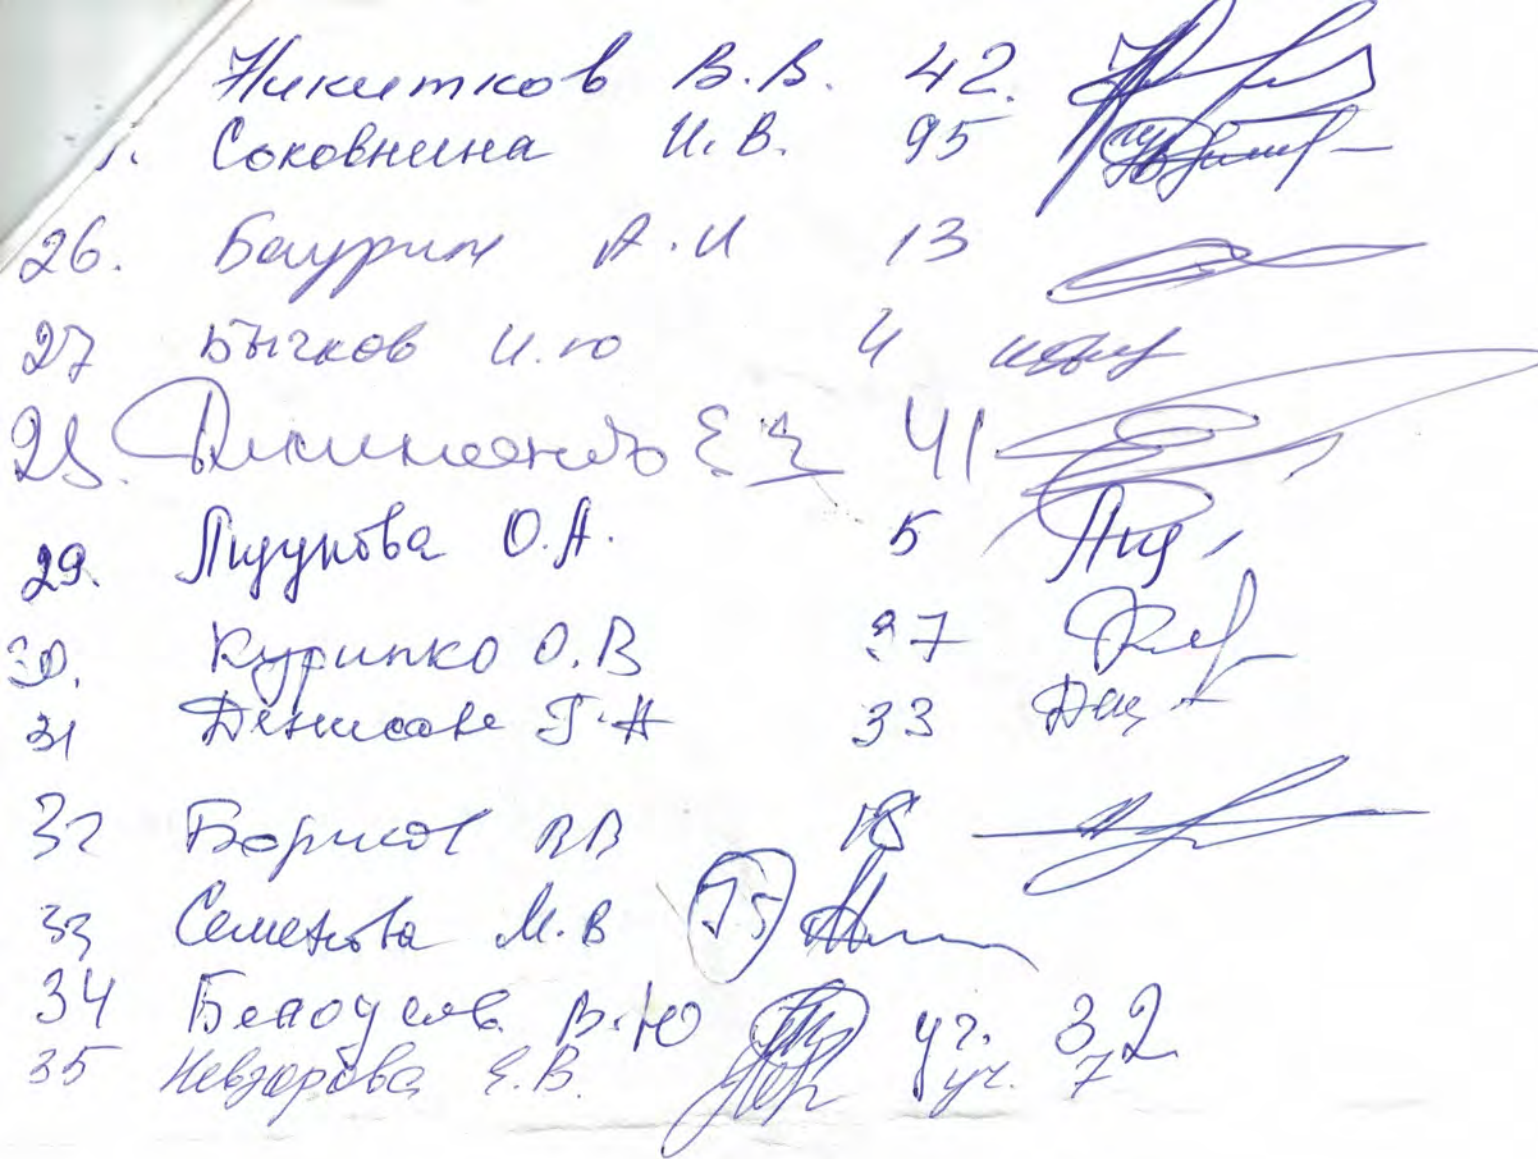 Никитков В.В. 42.
Соковнина И.В. 95
26. Баурин А.И 13
27 Бычков И.Ю 4
28. 41
29. О.А. 5
30. Курипко О.В 97
31 Денисова Г.А 33
32 Борисов В.В
33 Семенова М.В 75
34 Белоусов В.Ю уч. 32
35 Невзорова Е.В. уч. 7